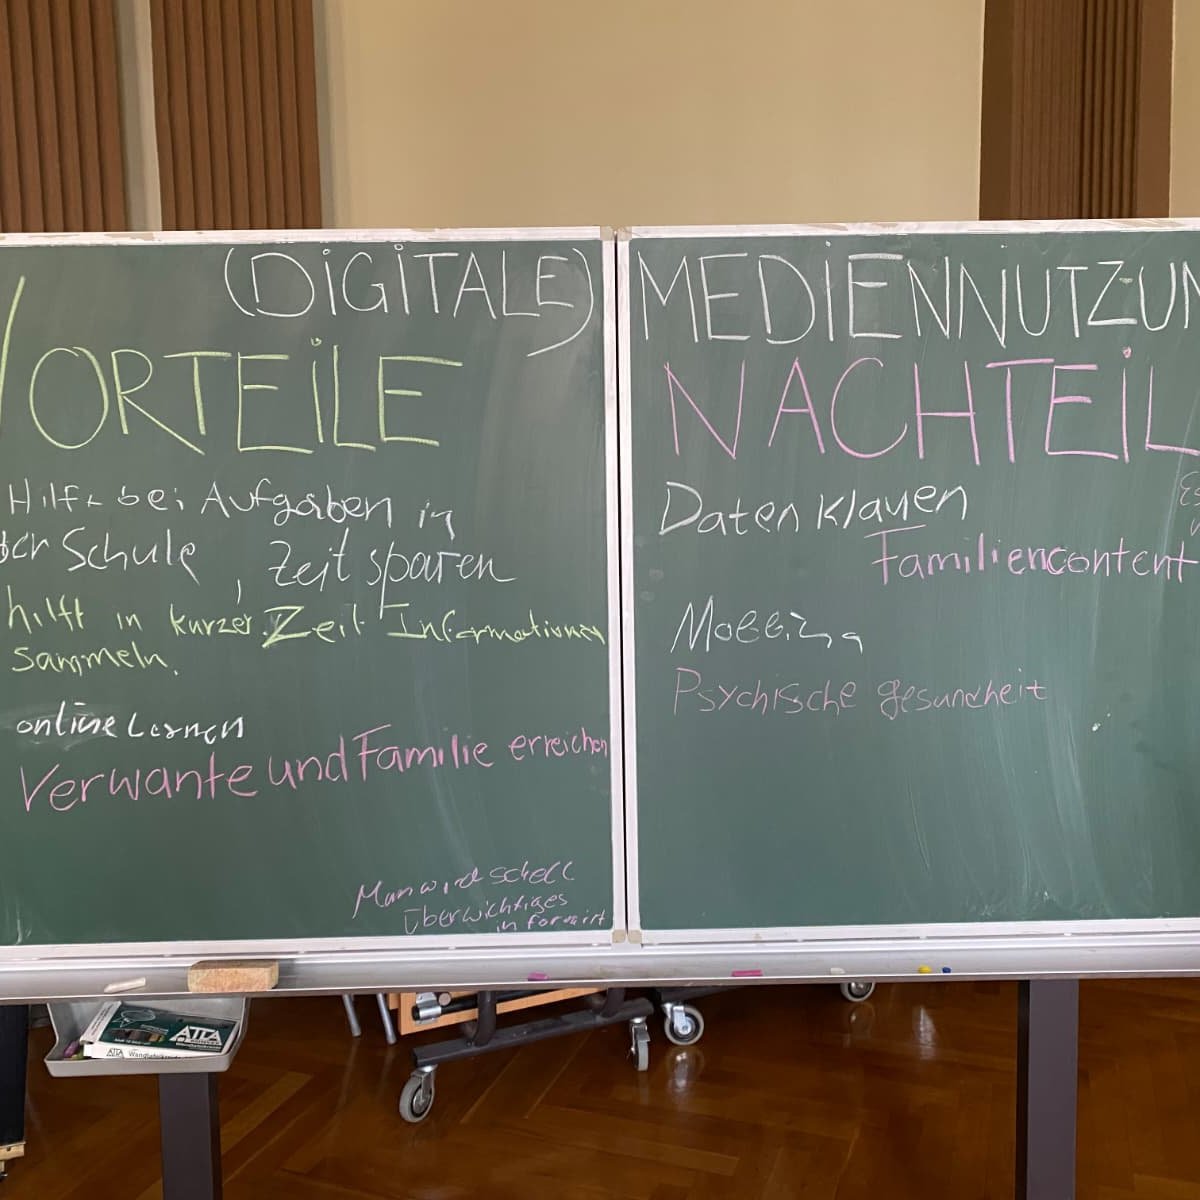 (DiGiTALE) MEDIENNUTZUN
VORTEiLE
Hilfe bei Aufgaben in
der Schule, Zeit sparen
hilft in kurzer Zeit Informationen
sammeln.
online Lernen
Verwante und Familie erreichen
Man wird schell
überwichtiges
informirt
NACHTEiL
Daten klauen
Familiencontent
Mobbing
Psychische gesundheit
ATLA